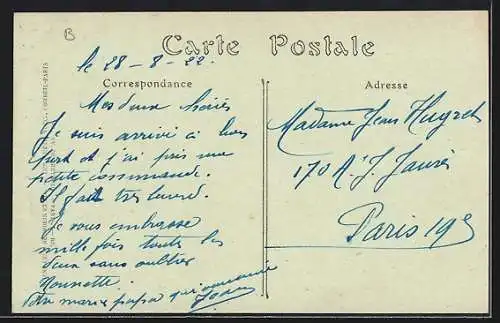 B
Carte Postale
le 28-8-22.
Correspondance
Mes deux chéries
Je suis arrivé à bon
port et j'ai pris une
petite commande.
Il fait très lourd.
Je vous embrasse
mille fois toutes les
deux sans oublier
Nounette.
Votre mari et papa qui vous aime
Jean
Adresse
Madame Jean Huyret
170 A. J. Jaurès
Paris 19e